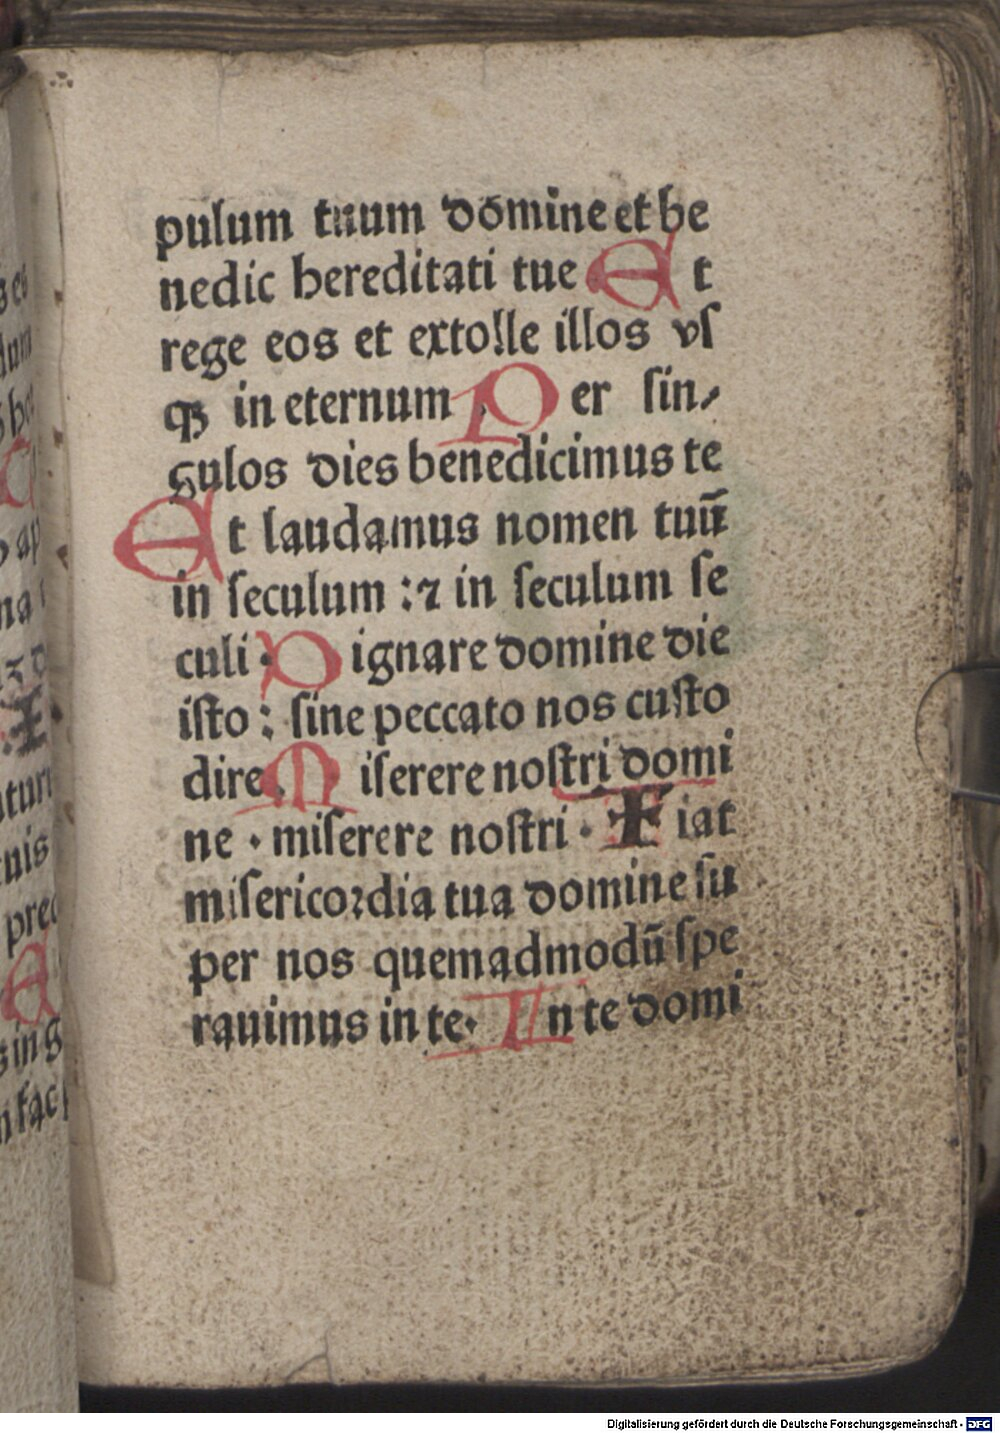 pulum tuum domine et be
nedic hereditati tue Et
rege eos et extolle illos vſ
qꝫ in eternum Per ſin⸗
gulos dies benedicimus te
Et laudamus nomen tuū
in ſeculum : ⁊ in ſeculum ſe
culi : Dignare domine die
iſto : ſine peccato nos cuſto
dire. Miſerere noſtri domi
ne · miſerere noſtri · Fiat
miſericoꝛdia tua domine ſu
per nos quemadmodū ſpe
rauimus in te · In te domi
Digitalisierung gefördert durch die Deutsche Forschungsgemeinschaft - DFG